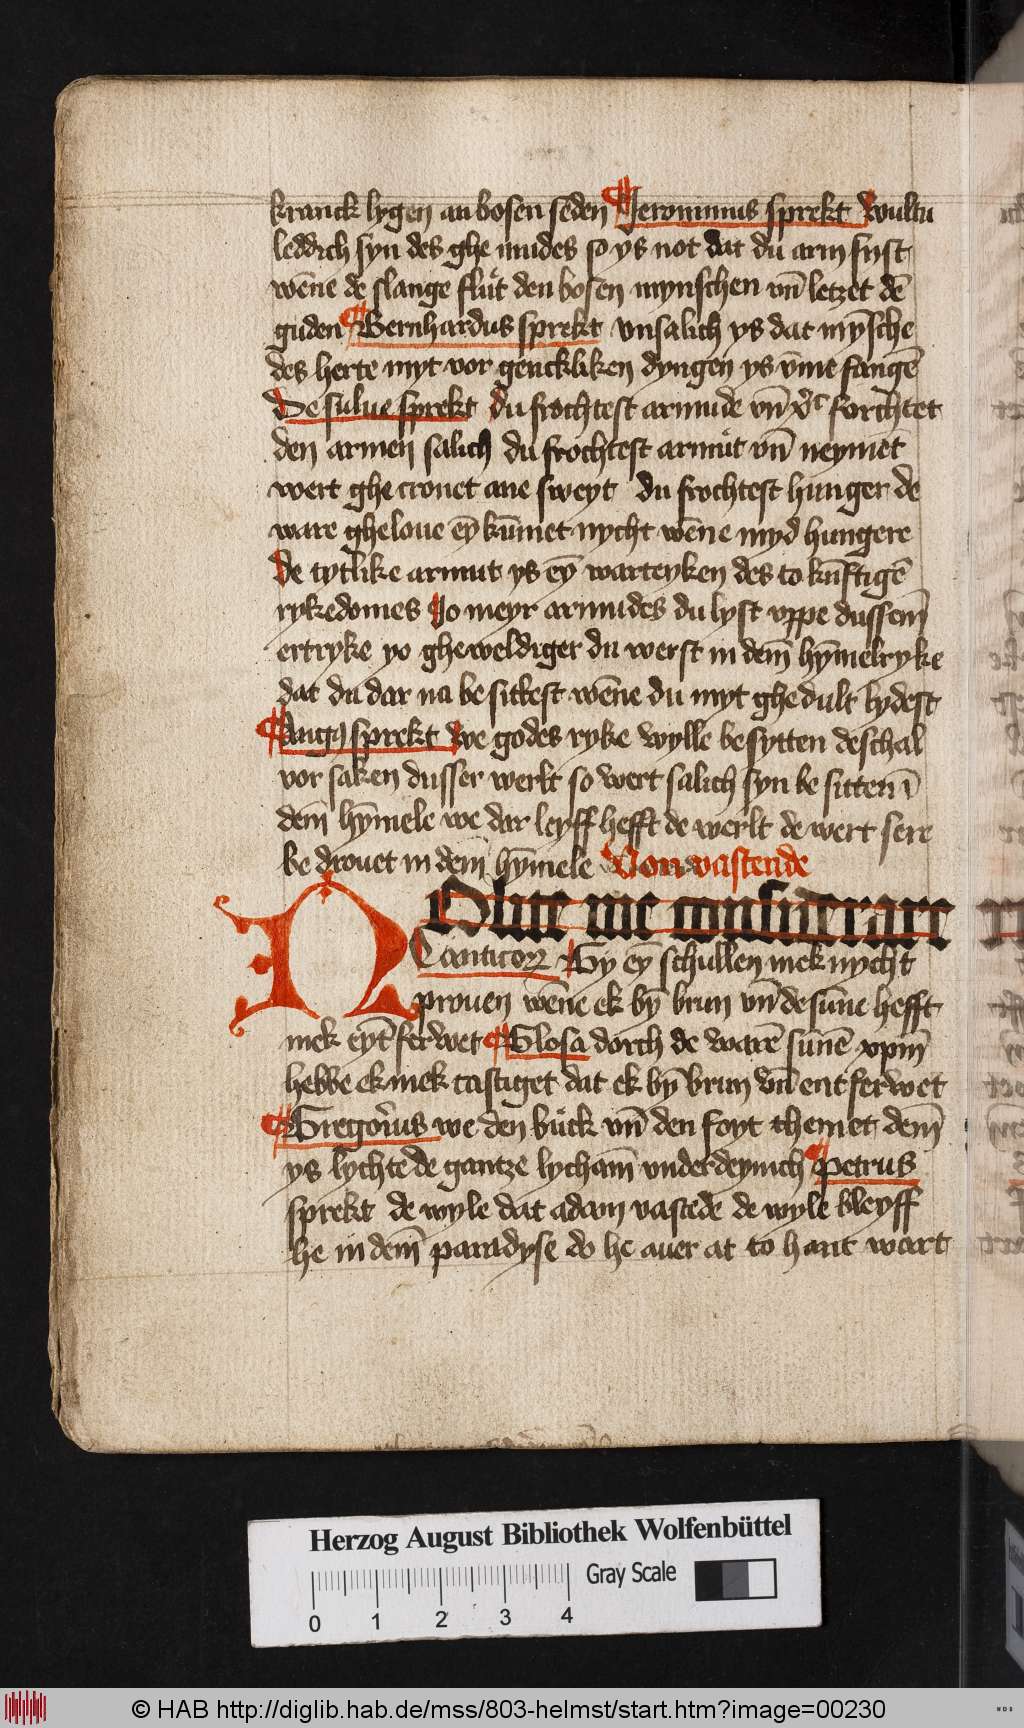 kranck lygen an bosen seden Jeronimus sprekt wultu
leddich syn des ghe mudes so ys not dat du arm synst
wēne de slange flůt den bosen mynschen vn̄ letzet dē
guden Bernhardus sprekt vnsalich ys dat mȳsche
des herte myt vor genckliken dyngen ys v̄me fangē
De sulue sprekt du frochtest armude vn̄ forchtet
den armen salich du frochtest armůt vn̄ neymet
wert ghe cronet ane sweyt du frochtest hunger de
ware gheloue eȳ kūmet nycht wēne myd hungere
de tytlike armut ys eȳ warteyken des to kūftigē
rykedomes Jo meyr armudes du lyst vppe dussem̄
ertryke yo ghe weldiger du werst in dem̄ hȳmelryke
dat du dar na be sittest wēne du myt ghe dult lydest
Augꝰ sprekt we godes ryke wylle be sytten de schal
vor saken dusser werlt so wert salich syn be sitten ī
dem̄ hȳmele we dar leyff hefft de werlt de wert sere
be drouet in dem̄ hȳmele Von vastende
Nolite me considerare
Canticoꝝ Gy eȳ schullen mek nycht
prouen wēne ek bȳ brun vn̄ de sūne hefft
mek eyt̄ ferwet Glosa dorch de warē sūnē xpm̄
hebbe ek mek castiget dat ek bȳ brun vn̄ ent ferwet
Gregorius we den bůck vn̄ den foyt themet dem̄
ys lychte de gantze lycham̄ vnderdeynich Petrus
sprekt de wyle dat adam vastede de wyle bleyff
he in dem̄ paradyse do he auer at to hant wart
Herzog August Bibliothek Wolfenbüttel
Gray Scale
0 1 2 3 4
© HAB http://diglib.hab.de/mss/803-helmst/start.htm?image=00230